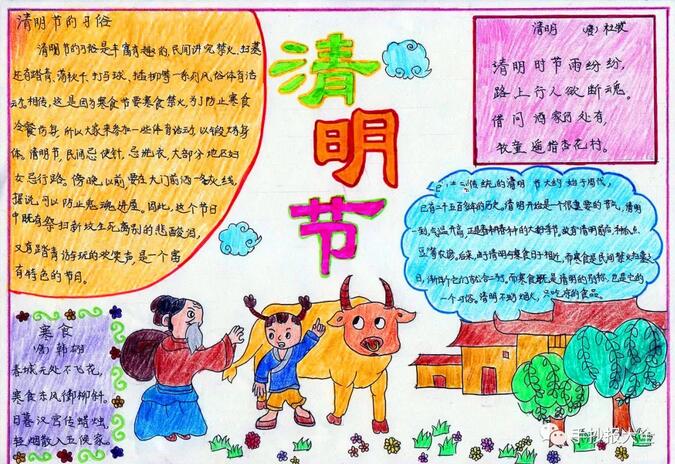 清明节的习俗
清明节的习俗是丰富有趣的,民间讲究禁火、扫墓
还有踏青、荡秋千、打马球、插柳等一系列风俗体育活
动。相传,这是因为寒食节要寒食禁火,为了防止寒食
冷餐伤身,所以大家来参加一些体育活动,以锻炼身
体。清明节,民间忌使针,忌洗衣,大部分地区妇
女忌行路。傍晚以前,要在大门前洒一条灰线,
据说可以防止鬼魂进屋。因此,这个节日
中既有祭扫新坟生死离别的悲酸泪,
又有踏青游玩的欢笑声,是一个富
有特色的节日。
清
明
节
清明 (唐)杜牧
清明时节雨纷纷,
路上行人欲断魂。
借问酒家何处有,
牧童遥指杏花村。
传统的清明节大约始于周代,
已有二千五百多年的历史。清明开始是一个很重要的节气,清明
一到,气温升高,正是春耕春种的大好时节,故有清明前后,种瓜点
豆
后来,由于清明与寒食的日子相近,而寒食是民间禁火扫墓之
日,渐渐的
而寒食既是清明的别称,也是它的
一个习俗。清明不动烟火,只吃凉的食品。
寒食
(唐)韩翃
春城无处不飞花,
寒食东风御柳斜。
日暮汉宫传蜡烛,
轻烟散入五侯家。
手抄报大全